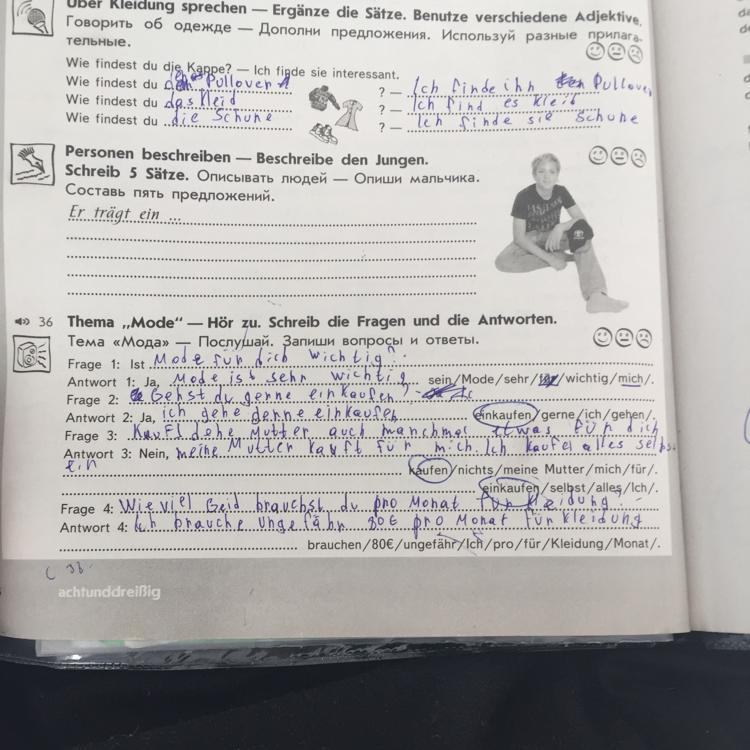 Über Kleidung sprechen — Ergänze die Sätze. Benutze verschiedene Adjektive.
Говорить об одежде — Дополни предложения. Используй разные прилага-
тельные.
Wie findest du die Kappe? — Ich finde sie interessant.
Wie findest du den Pullover ? — Ich finde ihn Pullover
Wie findest du das Kleid ? — Ich find es Kleid
Wie findest du die Schuhe ? — Ich finde sie Schuhe
Personen beschreiben — Beschreibe den Jungen.
Schreib 5 Sätze. Описывать людей — Опиши мальчика.
Составь пять предложений.
Er trägt ein ...
36 Thema „Mode“ — Hör zu. Schreib die Fragen und die Antworten.
Тема «Мода» — Послушай. Запиши вопросы и ответы.
Frage 1: Ist Mode für dich wichtig?
Antwort 1: Ja, Mode ist sehr wichtig sein/Mode/sehr/für/wichtig/mich/.
Frage 2: Gehst du gerne einkaufen?
Antwort 2: Ja, ich gehe gerne einkaufen einkaufen/gerne/ich/gehen/.
Frage 3: Kauft dehe Mutter auch manchmal etwas für dich
Antwort 3: Nein, meine Mutter kauft für mich. Ich kaufe alles selbs
ein kaufen/nichts/meine Mutter/mich/für/.
einkaufen/selbst/alles/Ich/.
Frage 4: Wie viel Geld brauchst du pro Monat für Kleidung?
Antwort 4: Ich brauche ungefähr 80€ pro Monat für Kleidung
brauchen/80€/ungefähr/Ich/pro/für/Kleidung/Monat/.
achtunddreißig